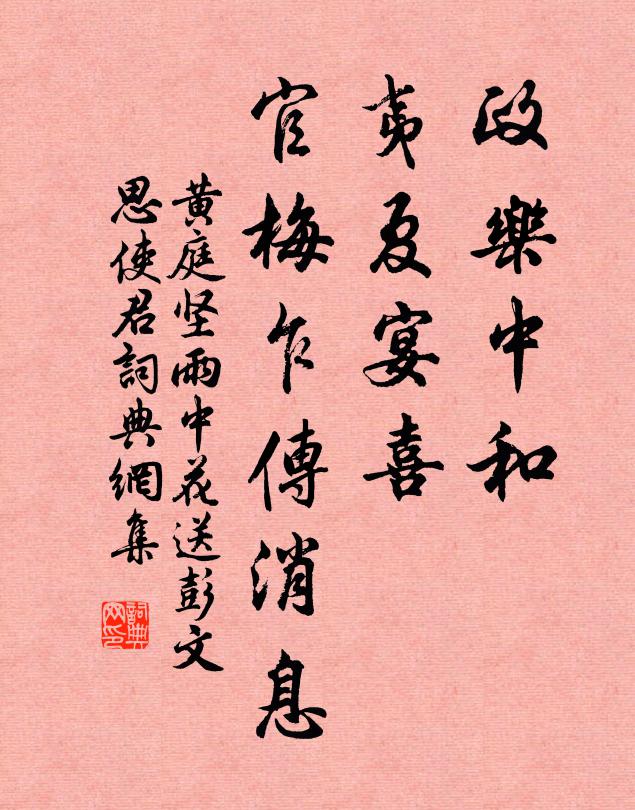 政樂中和
夷夏宴喜
官梅乍傳消息
黄庭坚雨中花送彭文
思使君詞典網集
詞典网印